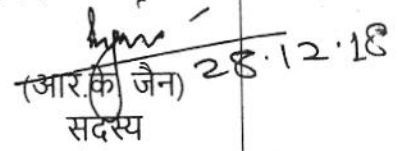 (आर.के जैन) 28.12.18
सदस्य